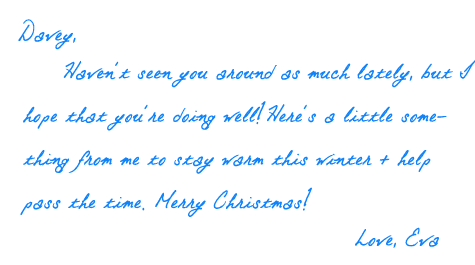 Davey,
Haven't seen you around as much lately, but I
hope that you're doing well! Here's a little some-
thing from me to stay warm this winter + help
pass the time. Merry Christmas!
Love, Eva